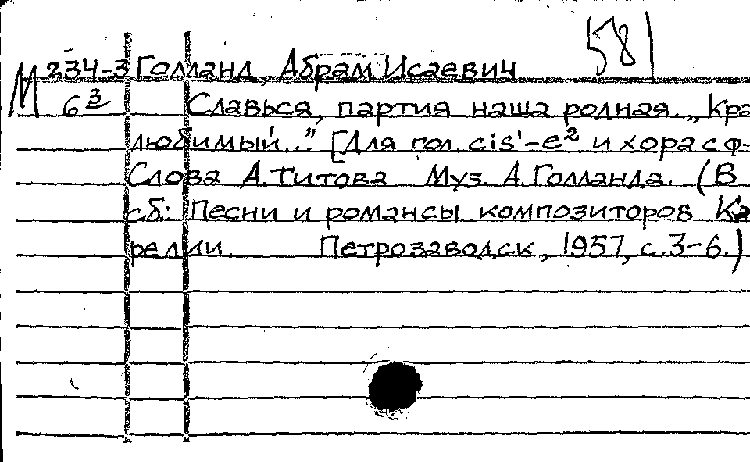 581
М 234-3 Голланд, Абрам Исаевич
6³ Славься, партия наша родная. „Кра
любимый..." [Для гол. cis'-e² и хора с ф-
Слова А. Титова Муз. А. Голланда. (В
сб: Песни и романсы композиторов Ка
релии. Петрозаводск, 1957, с. 3-6.)